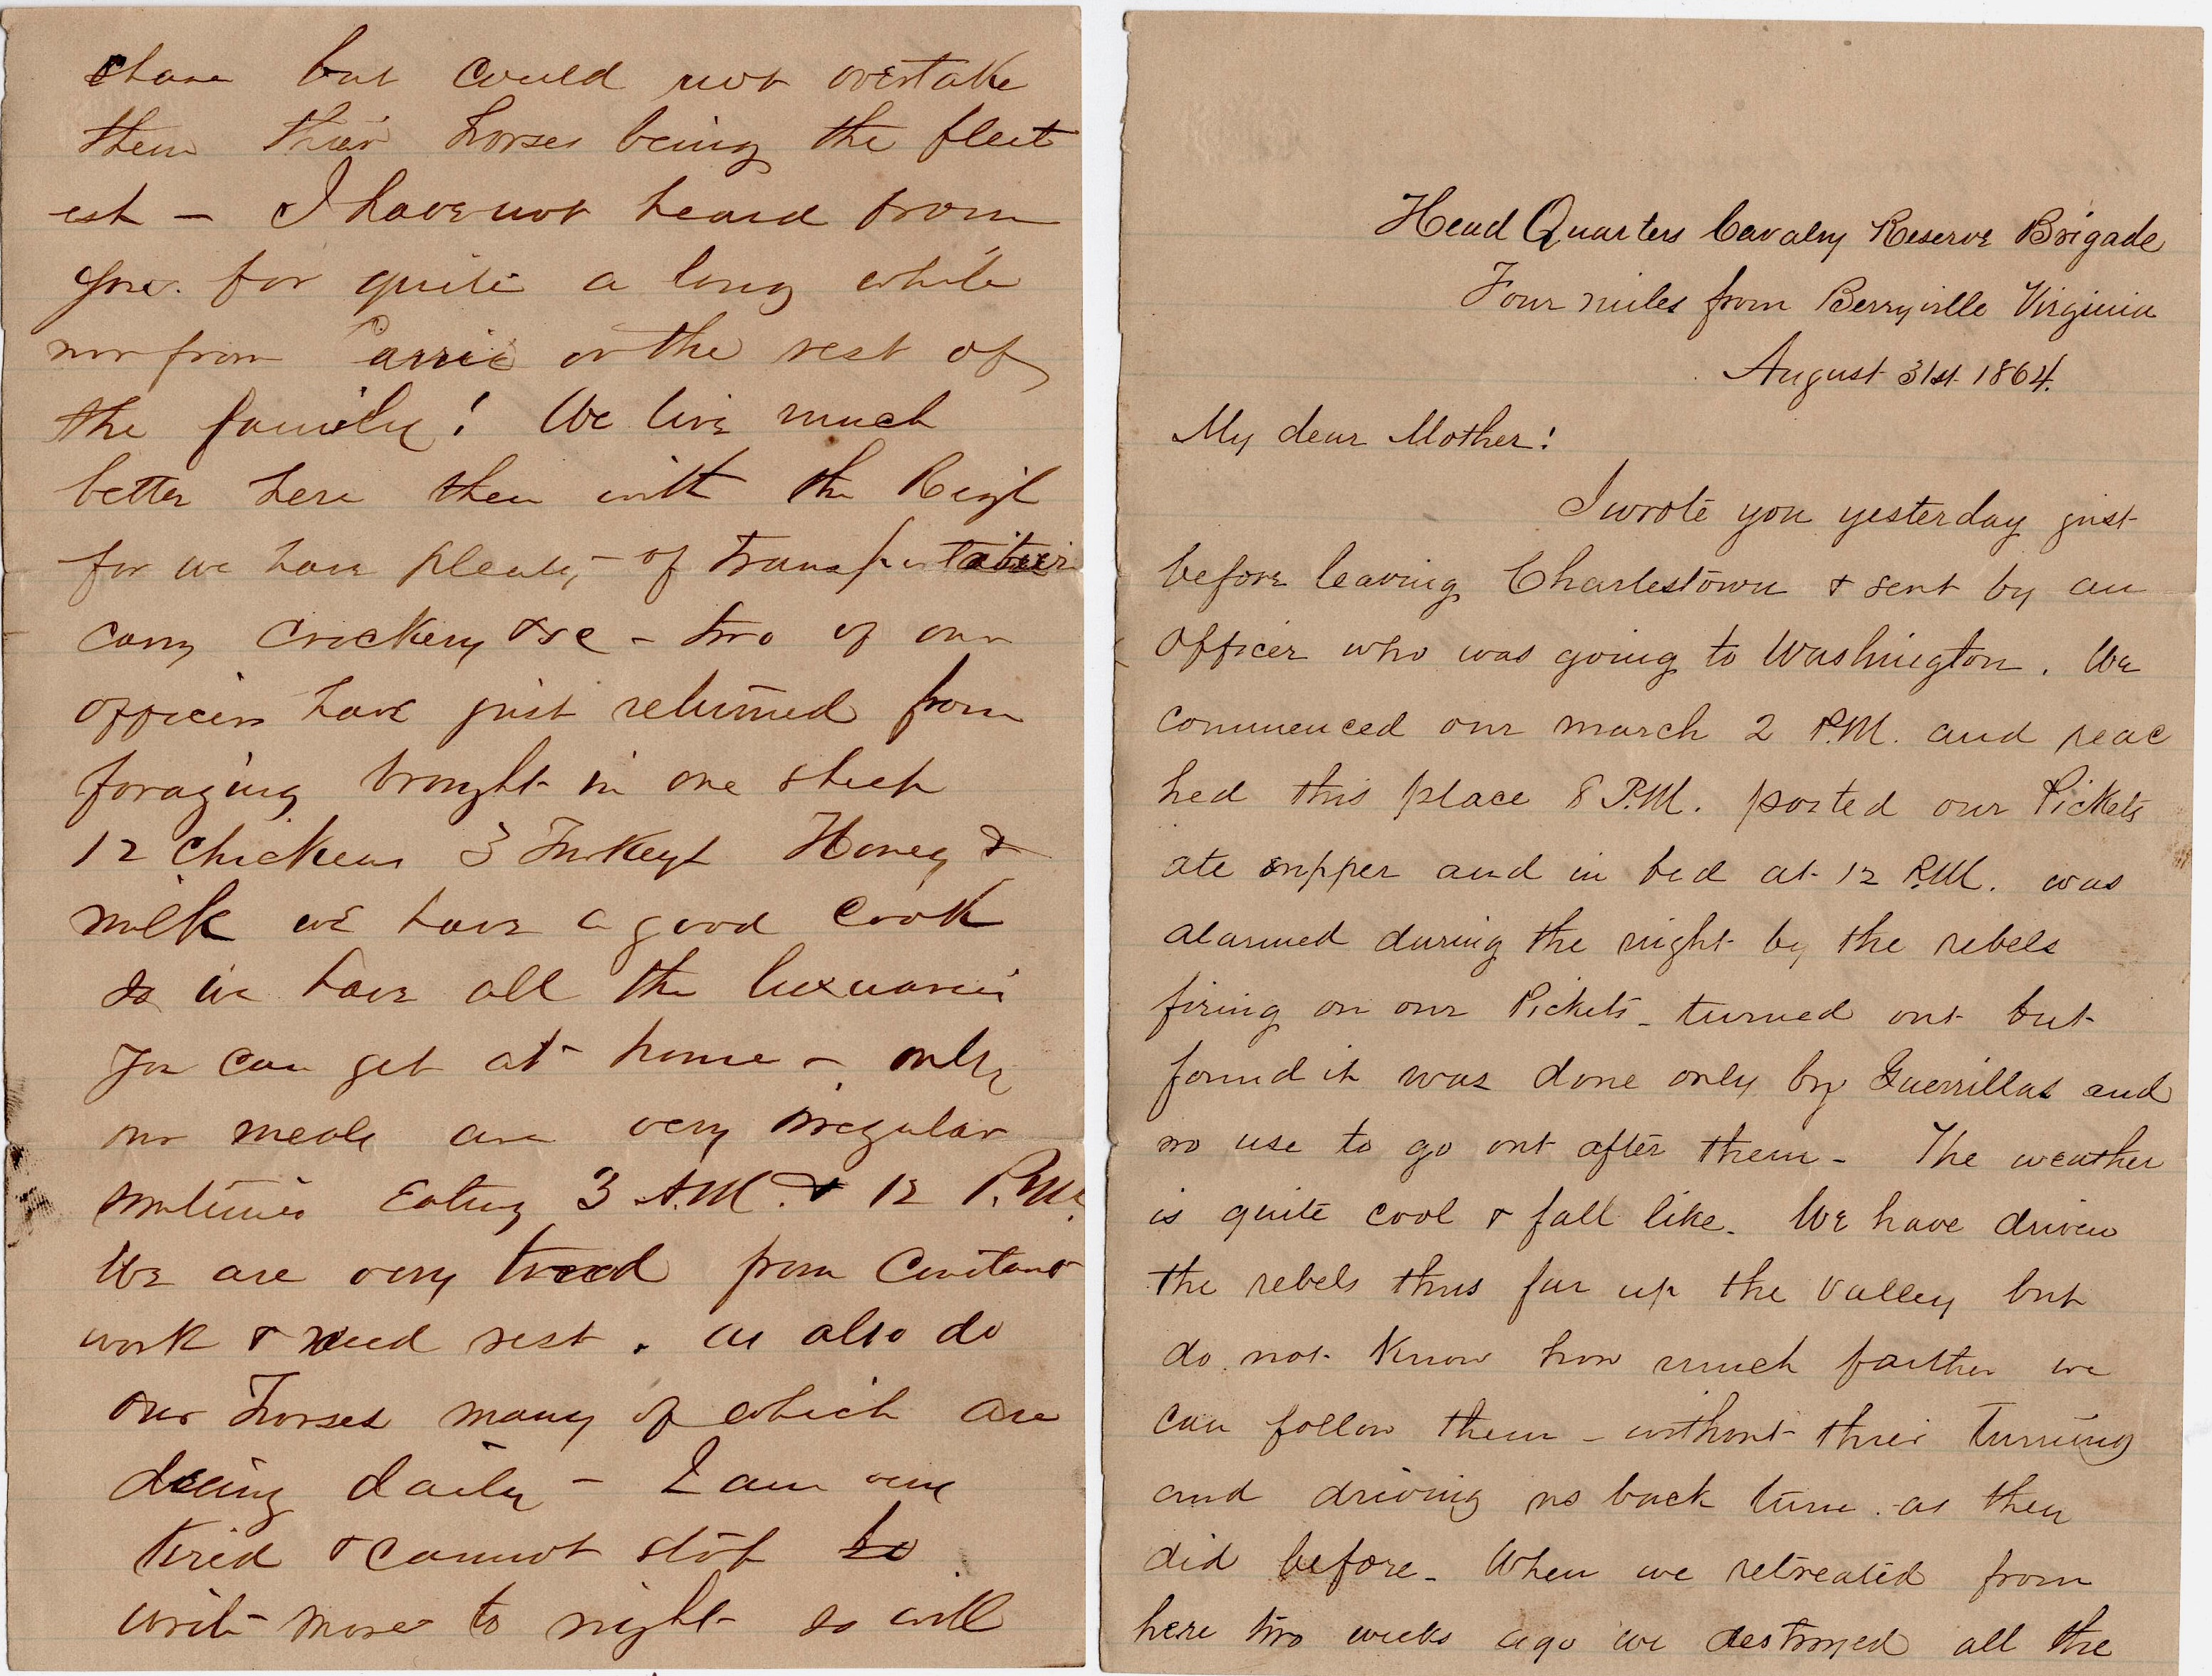 Head Quarters Cavalry Reserve Brigade
Four miles from Berryville Virginia
August 31st 1864.
My dear Mother!
I wrote you yesterday just
before leaving Charlestown & sent by an
officer who was going to Washington. We
commenced our march 2 P.M. and reac
hed this place 8 P.M. posted our Pickets
ate supper and in bed at 12 P.M. was
alarmed during the night by the rebels
firing on our Pickets - turned out but
found it was done only by Guerrillas and
no use to go out after them - The weather
is quite cool & fall like. We have driven
the rebels thus far up the valley but
do not Know how much farther we
can follow them - without their turning
and driving us back turn as they
did before - When we retreated from
here two weeks ago we destroyed all the
chase but could not overtake
them their horses being the fleet
est - I have not heard from
you for quite a long while
nor from Carrie or the rest of
the family! We live much
better here then with the Regt
for we have plenty of transportation
carry Crockery &c - two of our
officers have just returned from
foraging brought in one sheep
12 Chickens 3 Turkeys Honey &
milk we have a good Cook
so we have all the luxuaries
you can get at home - only
our meals are very irregular
sometimes Eating 3 A.M. & 12 P.M.
We are very tired from Constant
work & need rest. as also do
our Horses many of which are
dieing daily - I am very
tired & cannot stop to
write more to night so will